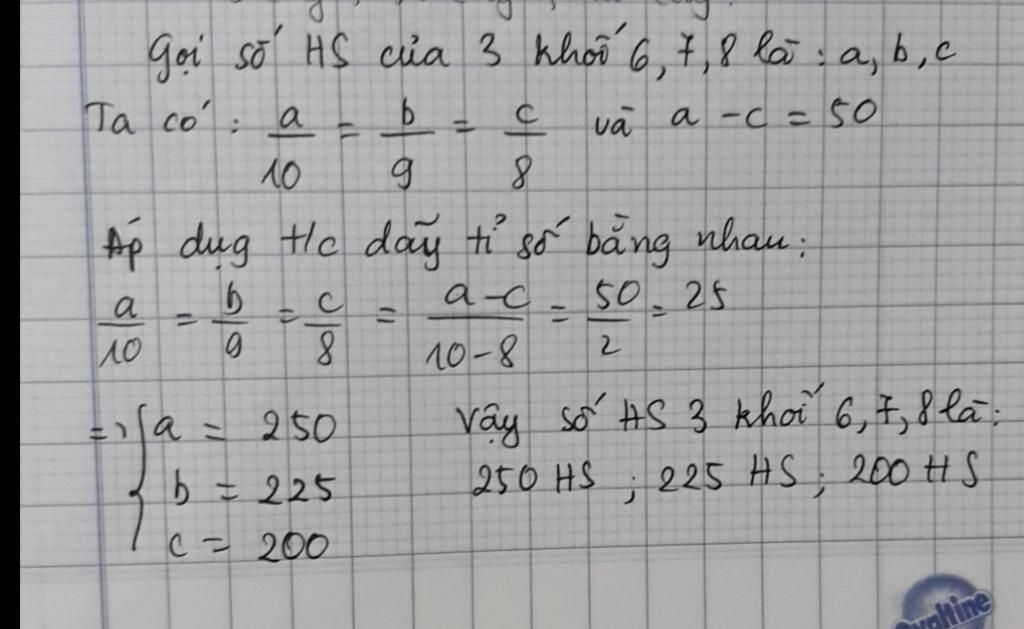 Gọi số HS của 3 khối 6, 7, 8 là : a, b, c
Ta có : a/10 = b/9 = c/8 và a - c = 50
Áp dụg t/c dãy tỉ số bằng nhau :
a/10 = b/9 = c/8 = a - c/10 - 8 = 50/2 = 25
=> { a = 250
b = 225
c = 200
Vậy số HS 3 khối 6, 7, 8 là :
250 HS ; 225 HS ; 200 HS
Ovaltine